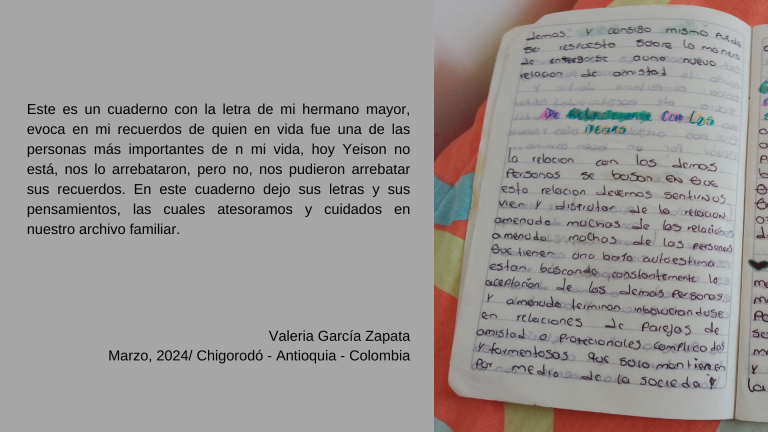 Este es un cuaderno con la letra de mi hermano mayor,
evoca en mi recuerdos de quien en vida fue una de las
personas más importantes de n mi vida, hoy Yeison no
está, nos lo arrebataron, pero no, nos pudieron arrebatar
sus recuerdos. En este cuaderno dejo sus letras y sus
pensamientos, las cuales atesoramos y cuidados en
nuestro archivo familiar.
Valeria García Zapata
Marzo, 2024/ Chigorodó - Antioquia - Colombia
demas y consigo mismo puede
ser respuesto sobre la manera
de entregarse a uno nuevo
relacion de amistad
De Relacionarnos Con Los
demas
la relacion con los demas
Personas se basan en que
esta relacion devemos sentirnos
vien y disfrutar de la relacion
amenudo muchas de las relaciones
amenudo muchas de las personas
que tienen una baja autoestima
estan buscando constantemente la
aceptación de los demás Personas
y amenudo terminan inbolucrandose
en relaciones de parejas de
amistad o profecionales complicados
y tormentosas que solo mantienen
Por medio de la socieda y